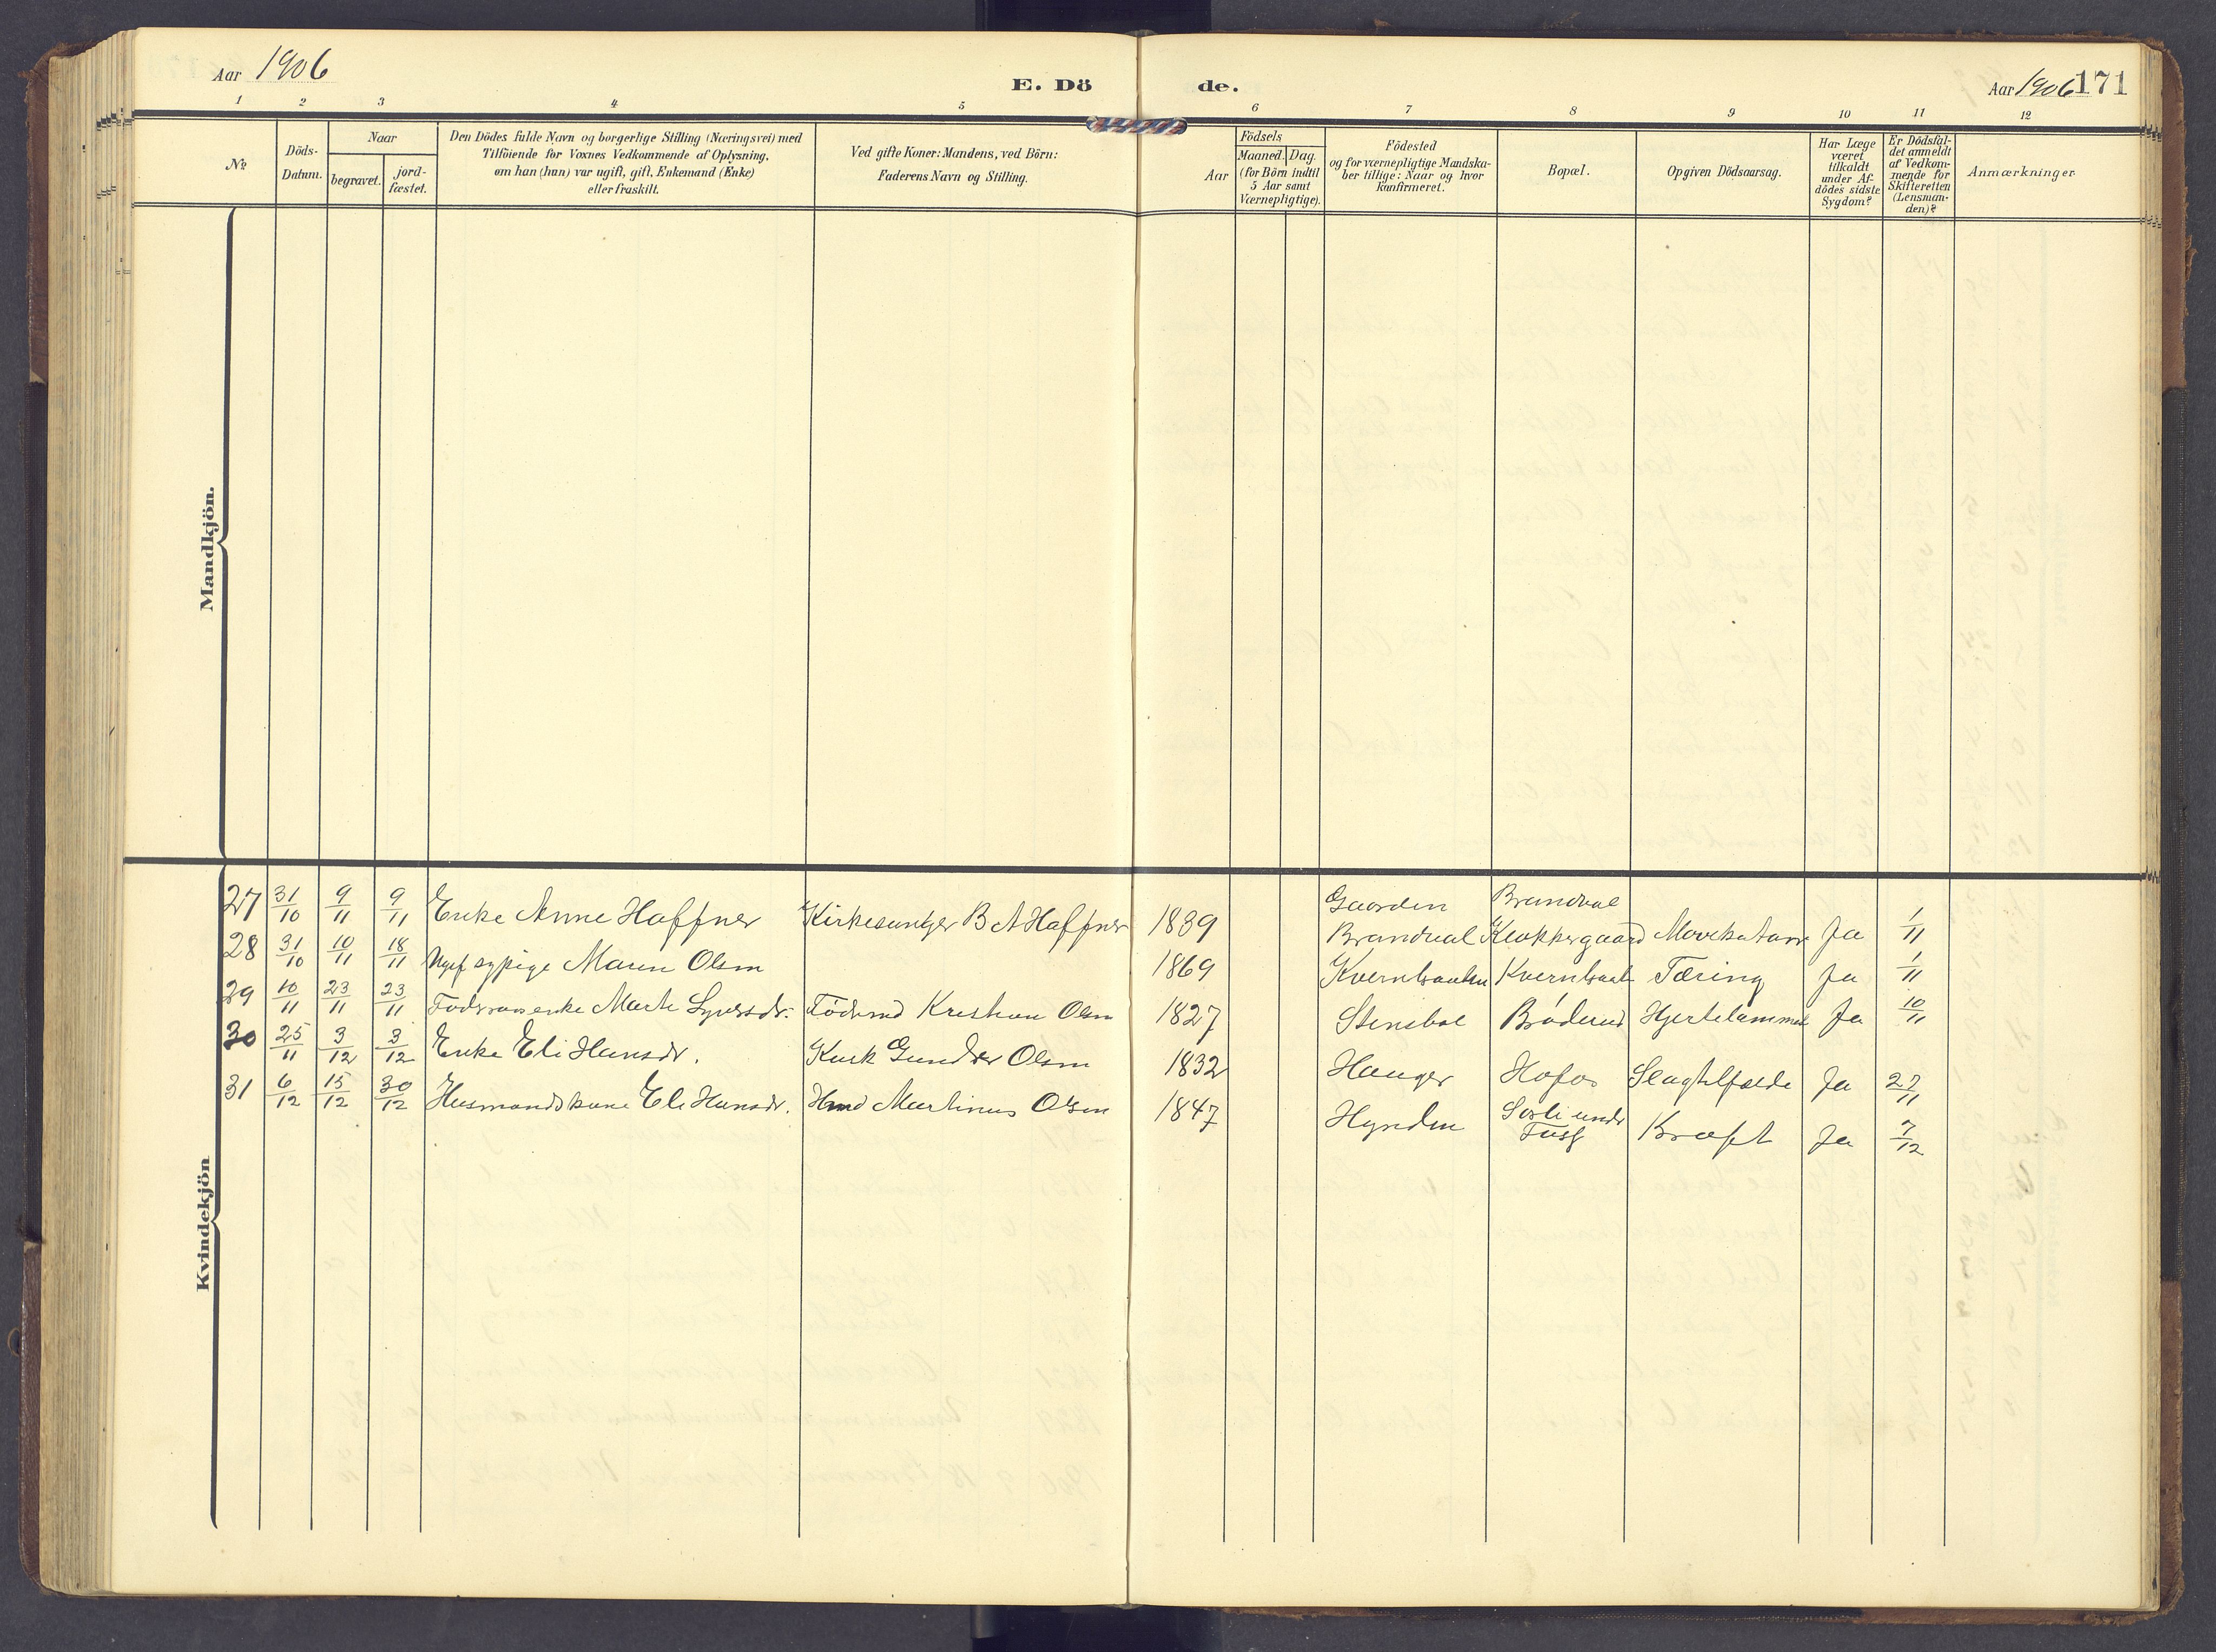 Aar 1906
E. Dö de.
Aar 1906 171
1 2 3 4 5 6 7 8 9 10 11 12
Nº
Döds-
Datum.
Naar
begravet.
jord-
fæstet.
Den Dödes fulde Navn og borgerlige Stilling (Næringsvei) med
Tilföiende for Voxnes Vedkommende af Oplysning,
om han (hun) var ugift, gift, Enkemand (Enke)
eller fraskilt.
Ved gifte Koner: Mandens, ved Börn:
Faderens Navn og Stilling.
Aar
Födsels
Maaned. Dag.
(for Börn indtil
5 Aar samt
Værnepligtige).
Födested
og for værnepligtige Mandska-
ber tillige: Naar og hvor
Konfirmeret.
Bopæl.
Opgiven Dödsaarsag.
Har Læge
været
tilkaldt
under Af-
dödes sidste
Sygdom?
Er Dödsfal-
det anmeldt
af Vedkom-
mende for
Skifteretten
(Lensman-
den)?
Anmærkninger
Mandkjön.
Kvindekjön
27 31/10 9/11 9/11 Enke Anne Haffner Kirkesanger B A Haffner 1839 Gaarden Brandval Brandval Klokkergaard Ja 1/11
28 31/10 10/11 18/11 Ugift sypige Maren Olsen 1869 Tæring Ja 1/11
29 10/11 23/11 23/11 Marte Födrmd Kristian Olsen 1827 Bråderud Ja 10/11
30 25/11 3/12 3/12 Enke Eli Hansdr. Kaark Gunder Olsen 1832 Hauger Hofos Slagtilfælde Ja 27/11
31 6/12 15/12 30/12 Husmandskone Eli Hansdr. Hmd Martinus Olsen 1847 Hynden Kræft Ja 7/12